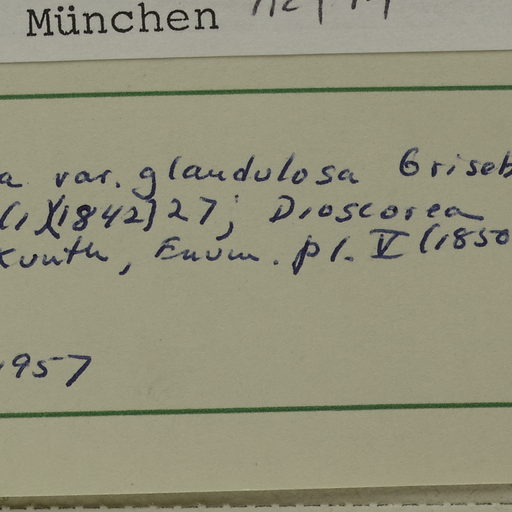 München
a var. glandulosa Griseb
(1)(1842) 27; Dioscorea
Kunth, Enum. pl. V (1850
1957